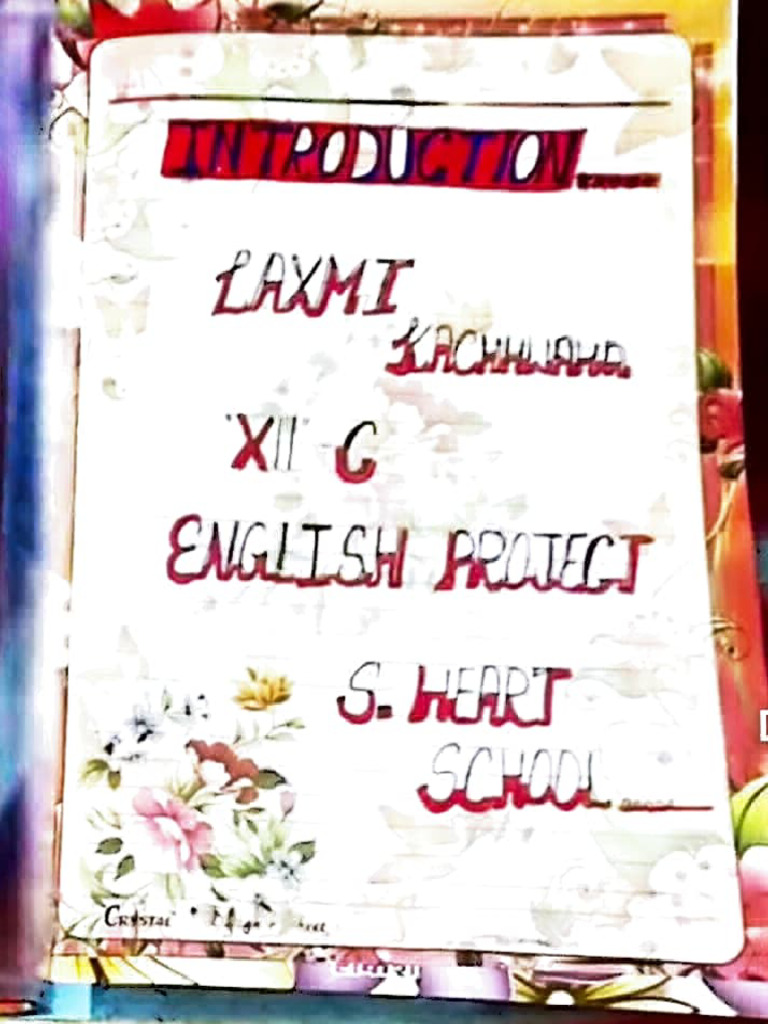 INTRODUCTION
LAXMI
KACHHWAHA
"XII" C
ENGLISH PROJECT
S. HEART
SCHOOL
CRYSTAL